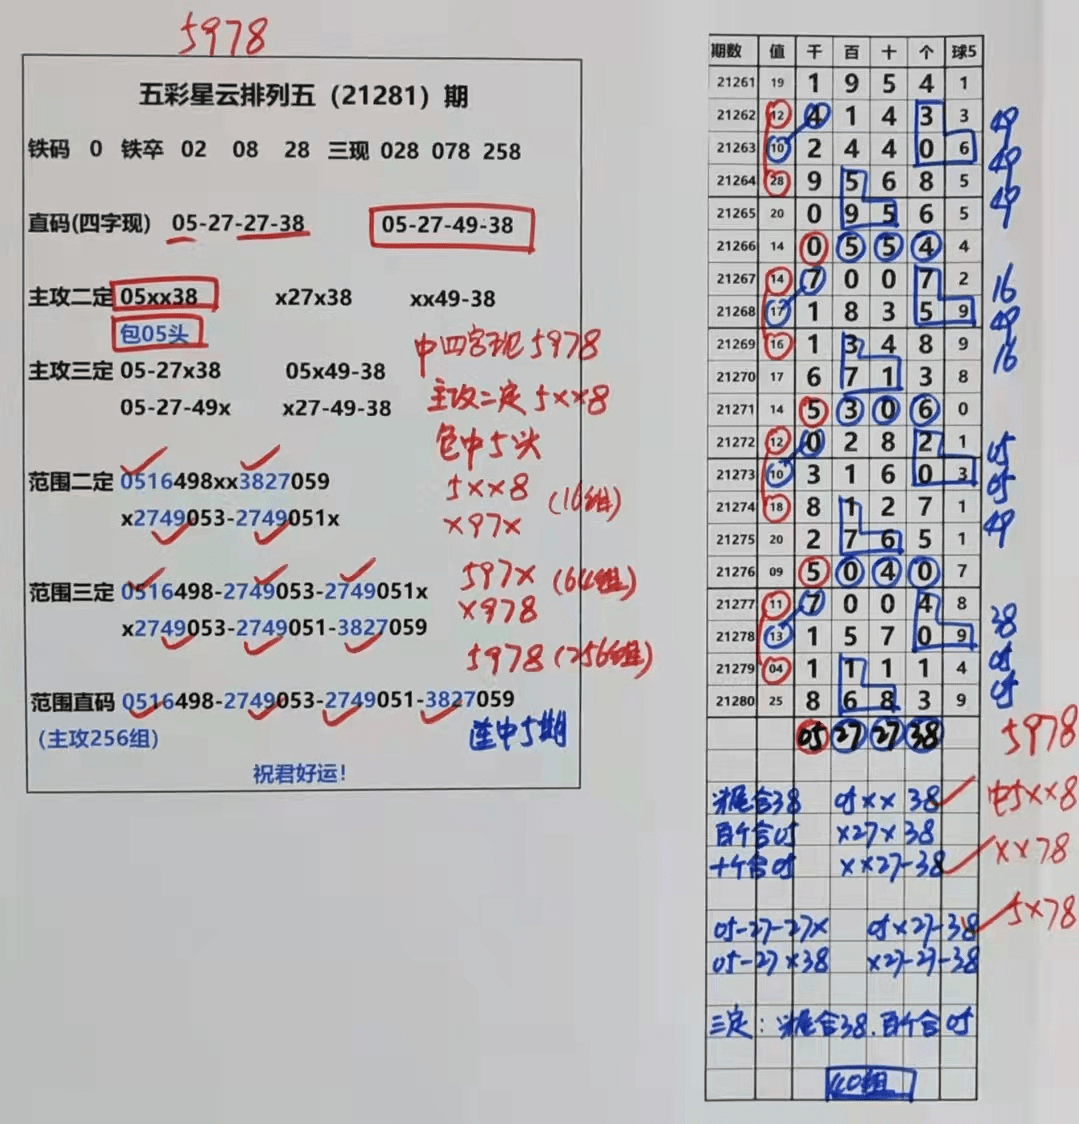 5978
五彩星云排列五（21281）期
铁码 0 铁卒 02 08 28 三现 028 078 258
直码(四字现) 05-27-27-38 05-27-49-38
主攻二定 05xx38 x27x38 xx49-38
包05头
中四字现5978
主攻三定 05-27x38 05x49-38
主攻二定5××8
05-27-49x x27-49-38
包中5头
范围二定 0516498xx3827059
5××8 (16组)
x2749053-2749051x
×97×
范围三定 0516498-2749053-2749051x
597× (64组)
x2749053-2749051-3827059
×978
5978 (256组)
范围直码 0516498-2749053-2749051-3827059
(主攻256组) 连中5期
祝君好运！
期数 值 千 百 十 个 球5
21261 19 1 9 5 4 1
21262 12 4 1 4 3 3 49
21263 10 2 4 4 0 6 49
21264 28 9 5 6 8 5 49
21265 20 0 9 5 6 5
21266 14 0 5 5 4 4
21267 14 7 0 0 7 2 16
21268 17 1 8 3 5 9 49
21269 16 1 3 4 8 9 16
21270 17 6 7 1 3 8
21271 14 5 3 0 6 0
21272 12 0 2 8 2 1 05
21273 10 3 1 6 0 3 05
21274 18 8 1 2 7 1 49
21275 20 2 7 6 5 1
21276 09 5 0 4 0 7
21277 11 7 0 0 4 8 38
21278 13 1 5 7 0 9 05
21279 04 1 1 1 1 4 05
21280 25 8 6 8 3 9
05 27 27 38 5978
头尾合38 05×× 38 中5××8
百个合05 ×27×38
十个合05 ××27-38 ××78
05-27-27× 05×27-38 5×78
05-27×38 ×27-27-38
三定：头尾合38.百个合05
40组